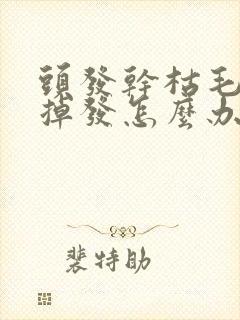 頭發幹枯毛
掉發怎麼办
裴特助